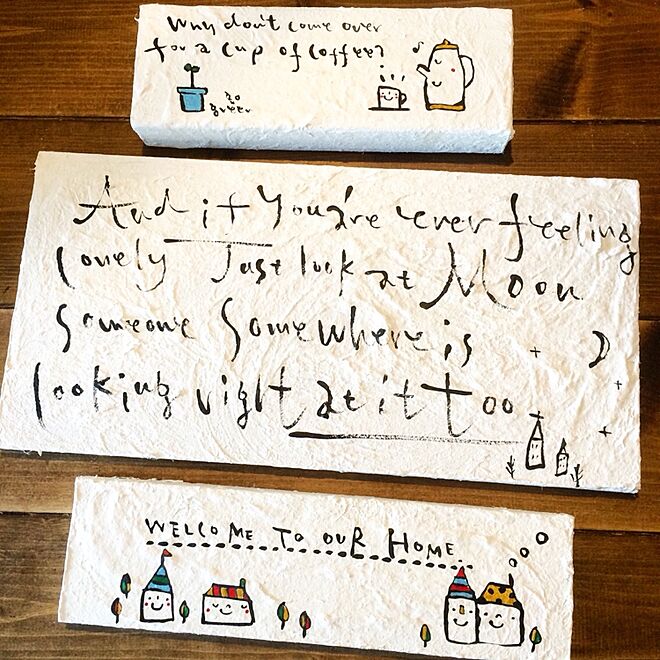 Why don't come over
for a cup of coffee?
go
green
And if you're ever feeling
lonely Just look at Moon
Someone Somewhere is
looking right at it too
WELCOME TO OUR HOME